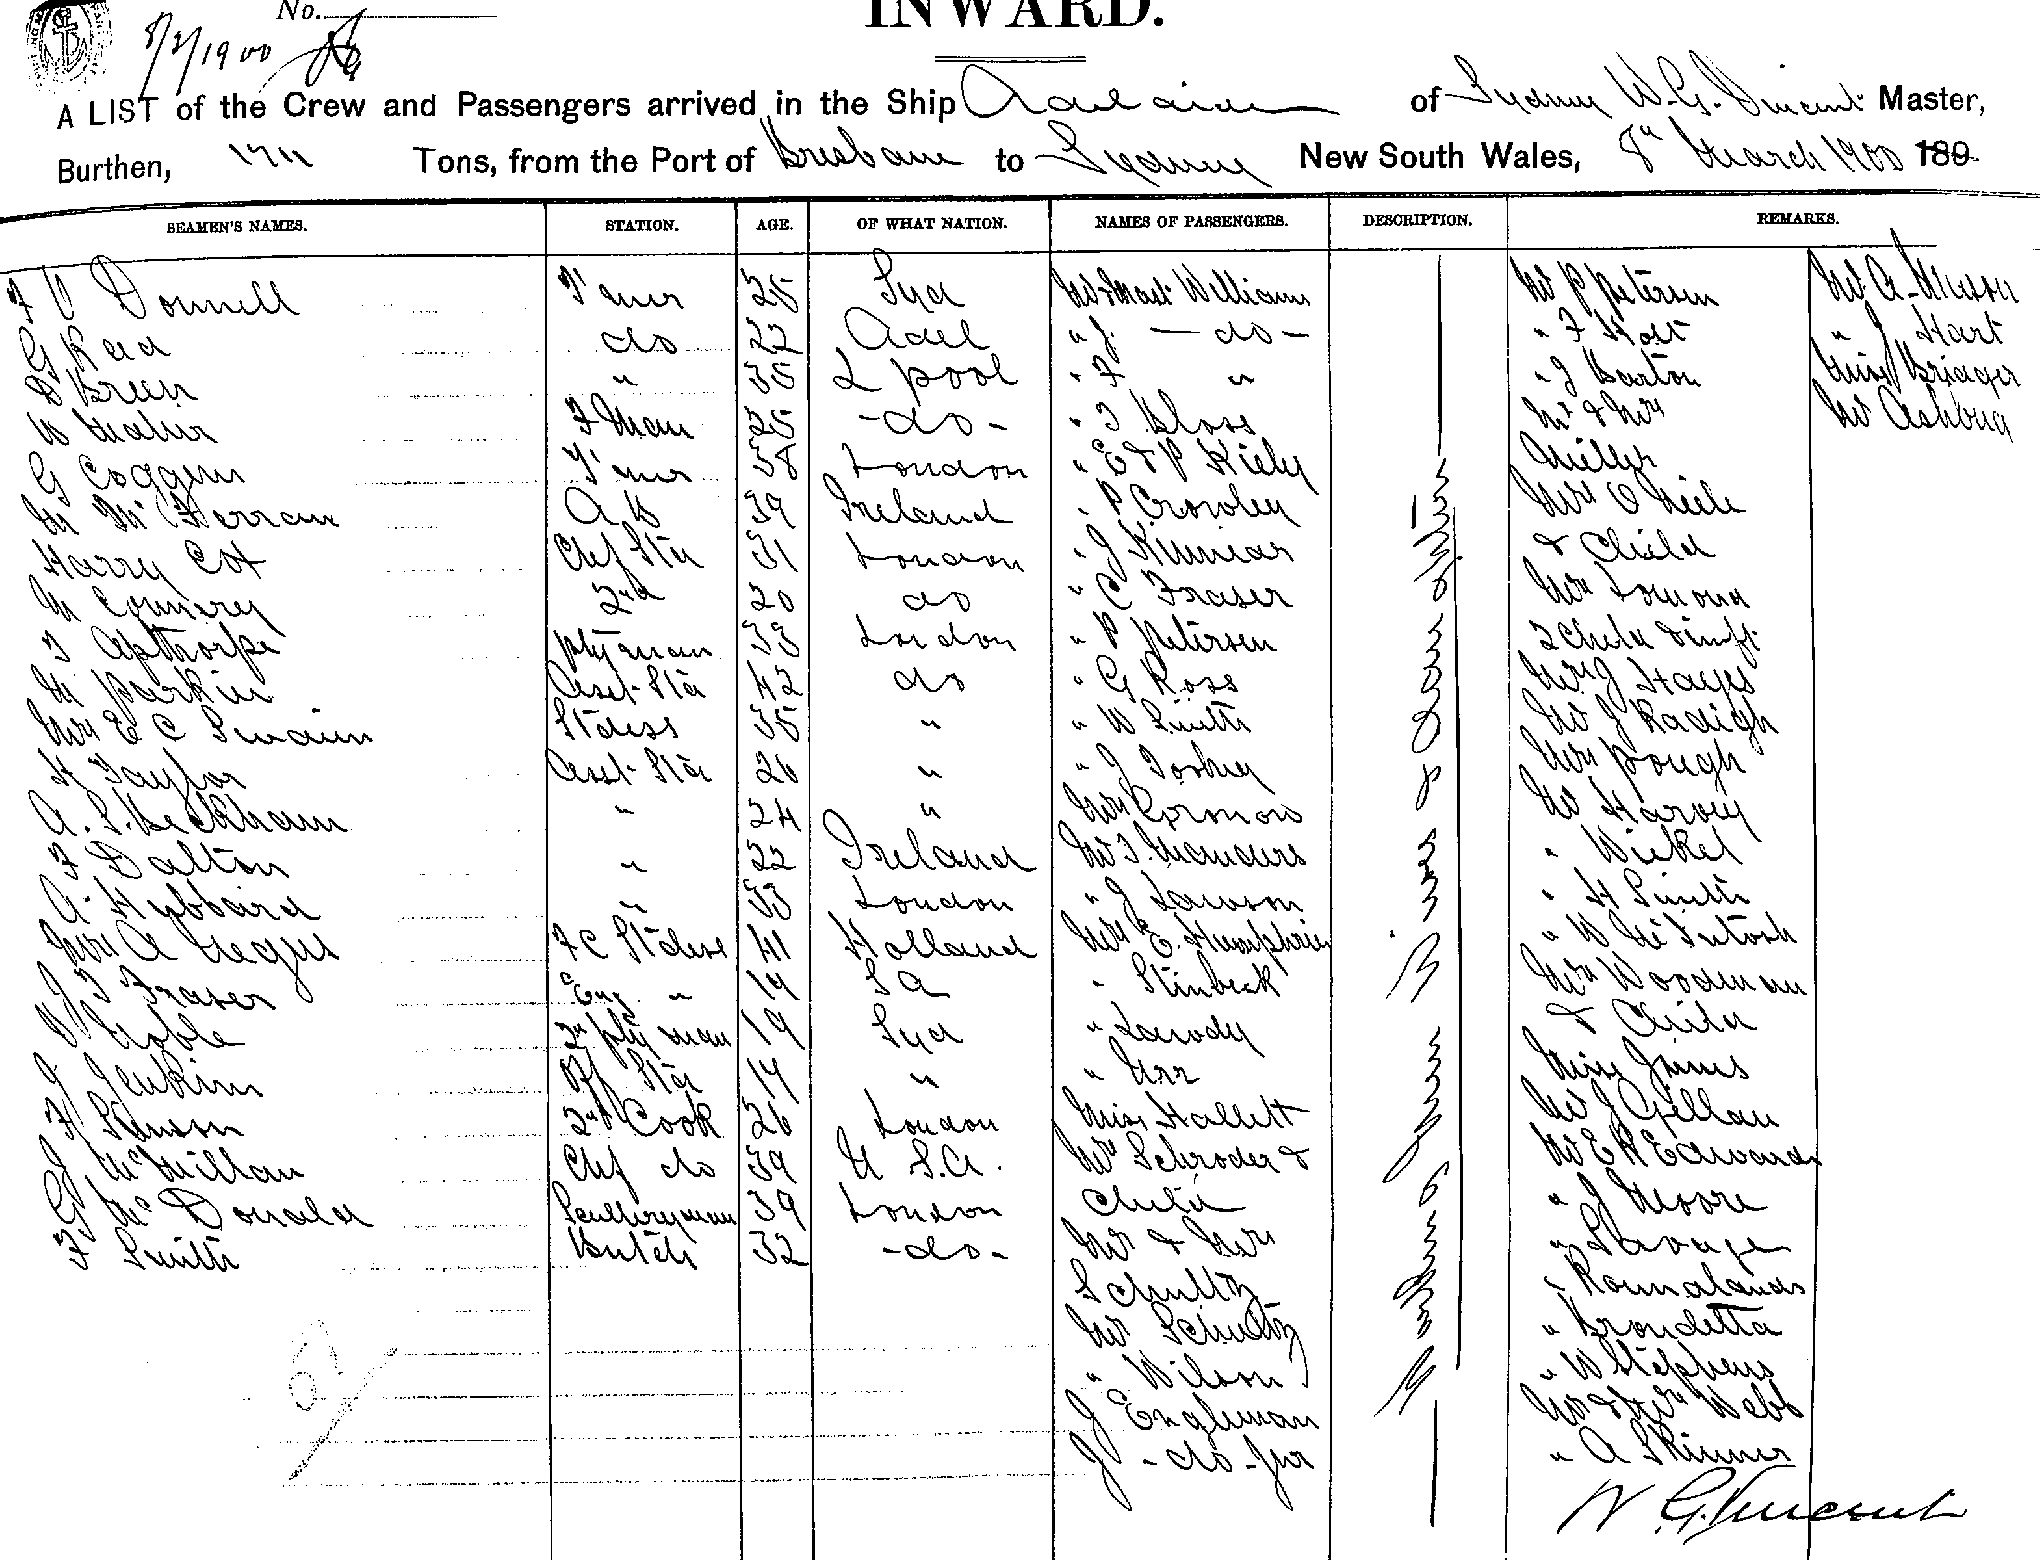 No.
8/3/1900
INWARD.
A LIST of the Crew and Passengers arrived in the Ship Adelaide of Sydney W. G. Vincent Master,
Burthen, 1711 Tons, from the Port of Brisbane to Sydney New South Wales, 8th March 1900 189
SEAMEN'S NAMES. STATION. AGE. OF WHAT NATION. NAMES OF PASSENGERS. DESCRIPTION. REMARKS.
F O Donnell T'mer 25 Syd Williams Mr P Petersen Mr A
G Reid do 22 Adel " J. - do - " F Holt " J Hart
D Breen " 35 L pool " F " " J Barton Miss Bridger
W Maher F Man 25 - do - " T Sloss Mr & Mrs Mr Ashbury
G Coggins T'mer 38 London " E & P Kiely Miller
M McFerran A B 39 Ireland " P Crowley Mrs O Neile
Harry Cox Chf Std 31 London " J Kinniar & Child
M 2nd 20 do " C Fraser Mrs Lomond
T Apthorpe Ptyman 33 London " P Petersen 2 Child & inft
M Parkin Asst Std 42 do " G Ross Mrs J Hayes
Mrs E C Swain Stdess 35 " " W Smith Mr J Radigh
H Taylor Asst Std 26 " " J Mrs Pough
A. S. Beckham " 24 " Mrs Cornow Mr Harvey
F Dalton " 22 Ireland Mr T. Manders " Wickel
A. Hubbard " 33 London " J Lawson " H Smith
Mrs A Negus F C Stdess 41 Holland Mrs E. Humphries " W McIntosh
J T Fraser Eng. " 19 S A " Stinbeck Mrs Woodman
W Noble 2nd Pty man 19 Syd " & Child
J Jenkins Off Std 19 " " Miss Jinns
F 2nd Cook 26 London Miss Hallett Mr J Gillan
J McMillan Chf do 39 U S. A. Mrs Schroder & Mr E R Edwards
G McDonald Sculleryman 39 London Child " J Moore
F Smith Butch 32 - do - Mr & Mrs " Savage
Schultz " Roundlands
Mr Schultz " Brondetta
" Wilson " W Stephens
J Engleman Mr & Mrs Webb
J - do - Jnr " A Skinner
W. G. Vincent